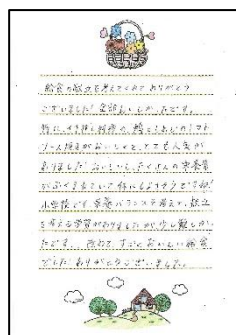 給食の献立を考えてくれてありがとう
ございました!全部おいしかったです。
特に、イタリア料理の、鶏とあじのトマト
ソース焼きがおいしかったです。とても人気が
ありました!おいしいし、たくさんの栄養素
がふくまれていて体にもよさそうですね!
小学校でも、栄養バランスを考えて、献立
を考える学習がありましたが少し難しかっ
たです。改めて、すごくおいしい給食
でした!ありがとうございました。